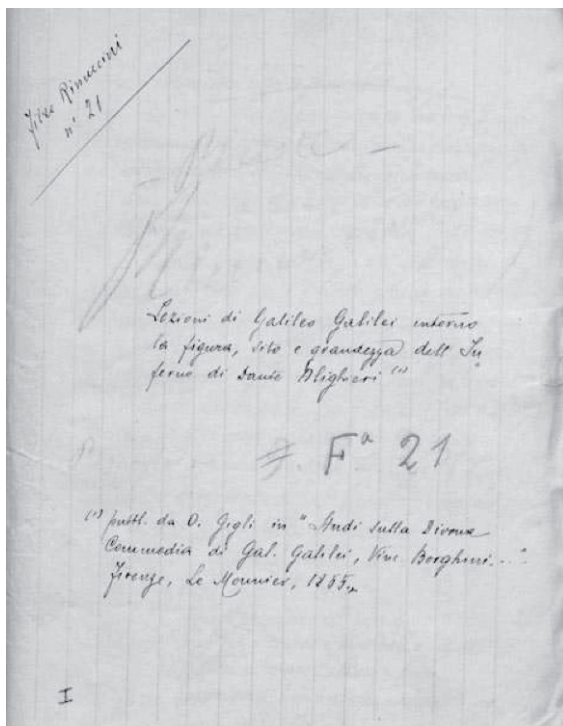 Filza Rinuccini
n° 21
Lezioni di Galileo Galilei intorno
la figura, sito e grandezza dell' In
ferno di Dante Alighieri (1)
Fª 21
(1) pubbl. da O. Gigli in "Studi sulla Divina
Commedia di Gal. Galilei, Vinc. Borghini..."
Firenze, Le Monnier, 1855.
I